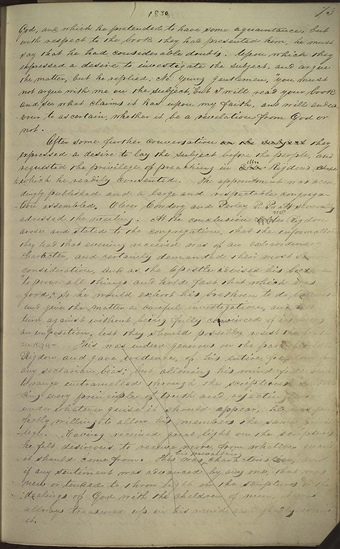 1830
73
God, and which he pretended to have some acquaintance, but
with respect to the book they had presented him, he must
say that he had considerable doubt. Upon which they
expressed a desire to investigate the subject, and argue
the matter, but he replied: No, young gentlemen, you must
not argue with me on the subject; but I will read your book
and see what claims it has upon my faith, and will endea-
vour to ascertain, whether it be a revelation from God or
not.
After some further conversation on the subject they
expressed a desire to lay the subject before the people, and
requested the privilege of preaching in Rigdon's
which he readily consented. The appointment was accor-
dingly published and a large and respectable congrega-
tion assembled. Oliver Cowdery and Parley P. Pratt severally
addressed the meeting. At the conclusion Rigdon
arose and stated to the congregation, that the information
they had that evening received was of an extraordinary
character, and certainly demanded their most
consideration, and as the apostle advised his
to prove all things and hold fast that which is
good; so he would exhort his brethren to do
and give the matter a careful investigation; and not
turn against it, without being fully convinced of its
an imposition, lest they should possibly resist the
truth. This was indeed generous on the part of
Rigdon and gave evidence of his entire
any sectarian bias; but allowing his mind
through the scriptures
every principle of truth and
under whatever guise it should appear, he was per-
fectly willing to allow his members the same
Having received great light on the scriptures
he felt desirous to receive more, from whatever
it should come from. This was
if any sentiment was advanced by any one, that
new or tended to throw light on the scriptures or the
dealings of God with the children of men, it was
always treasured up in his mind